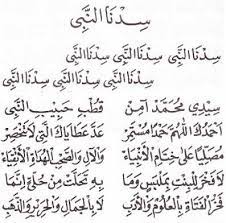 سِدْنَا النَّبِي
سِدْنَا النَّبِي سِدْنَا النَّبِي سِدْنَا النَّبِي
سِدْنَا النَّبِي سِدْنَا النَّبِي سِدْنَا النَّبِي
سِيدِي مُحَمَّد آمِنْ قُطْبِ حَبِيبِ النَّبِي
أَحْمَدُكَ اللّٰهُمَّ حَمْدًا مُسْتَمِرّ عَدَّ عَطَايَاكَ الَّتِي لَا تَنْحَصِرْ
مُصَلِّيًا عَلَى خِتَامِ الْأَنْبِيَاءْ وَالْآلِ وَالصَّحْبِ الْهُدَاةِ الْأَتْقِيَاءْ
لَا فَخْرَ لِلْبِنْتِ بِمَلْبَسٍ وَمَا بِهِ تَحَلَّتْ مِنْ حُلِيٍّ إِنَّمَا
فَخْرُ الْفَتَاةِ بِالْعُلُومِ وَالْأَدَبْ لَا بِالْجَمَالِ وَالْحَرِيرِ وَالذَّهَبْ